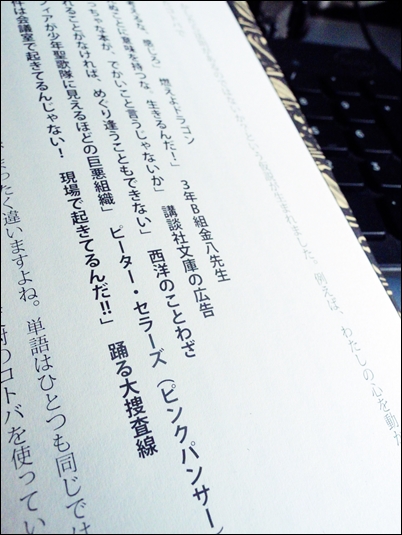 という仮説が生まれました。例えば、わたしの心を動か
えるな、感じろ」 燃えよドラゴン
ぬことに意味を持つな、生きるんだ!」 3年B組金八先生
っちゃな本が、でかいこと言うじゃないか」 講談社文庫の広告
れることがなければ、めぐり逢うこともできない」 西洋のことわざ
フィアが少年聖歌隊に見えるほどの巨悪組織」 ピーター・セラーズ(ピンクパンサー
件は会議室で起きてるんじゃない! 現場で起きてるんだ!!」 踊る大捜査線
まったく違いますよね。単語はひとつも同じでは
のコトバを使ってい